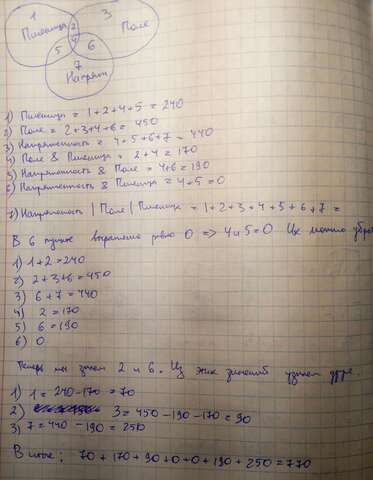 1
3
Пшеница
2
Поле
4
5
6
7
Напряж
1) Пшеница = 1+2+4+5 = 240
2) Поле = 2+3+4+6 = 450
3) Напряженность = 4+5+6+7 = 440
4) Поле & Пшеница = 2+4 = 170
5) Напряжоность & Поле = 4+6 = 190
6) Напряжетность & Пшеница = 4+5 = 0
7) Напряжоность | Поле | Пшеница = 1+2+3+4+5+6+7 =
В 6 пункте выражение равно 0 => 4 и 5 = 0 Их можно убрать
1) 1+2 = 240
2) 2+3+6 = 450
3) 6+7 = 440
4) 2 = 170
5) 6 = 190
6) 0
Теперь мы знаем 2 и 6. Из этих значений узнаем други.
1) 1 = 240 - 170 = 70
2) 3 = 450 - 190 - 170 = 90
3) 7 = 440 - 190 = 250
В итоге: 70 + 170 + 90 + 0 + 0 + 190 + 250 = 770